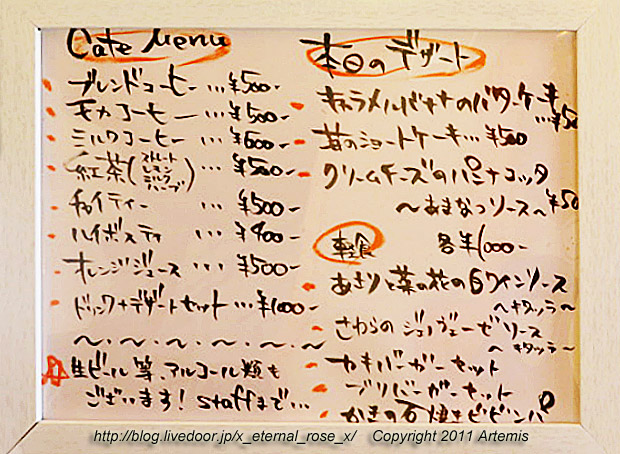 Cafe Menu
ブレンドコーヒー…¥500-
モカコーヒー…¥500-
ミルクコーヒー…¥600-
紅茶(ストレート レモン ミルク ハーブ)…¥500-
チャイティー…¥500-
ハイボスティ…¥400-
オレンジジュース…¥500-
ドリンク+デザートセット…¥1000-
〜・〜・〜・〜・〜・〜
生ビール等、アルコール類も
ございます! staffまで…
本日のデザート
キャラメルバナナのバターケーキ
…¥50
苺のショートケーキ…¥500
クリームチーズのパンナコッタ
〜あまなつソース〜¥50
軽食 各¥1000-
あさりと菜の花の白ワインソース
〜パスタ〜
さわらのジェノヴェーゼソース
〜パスタ〜
カキバーガーセット
ブリバーガーセット
かきの石焼きビビンバ
http://blog.livedoor.jp/x_eternal_rose_x/ Copyright 2011 Artemis